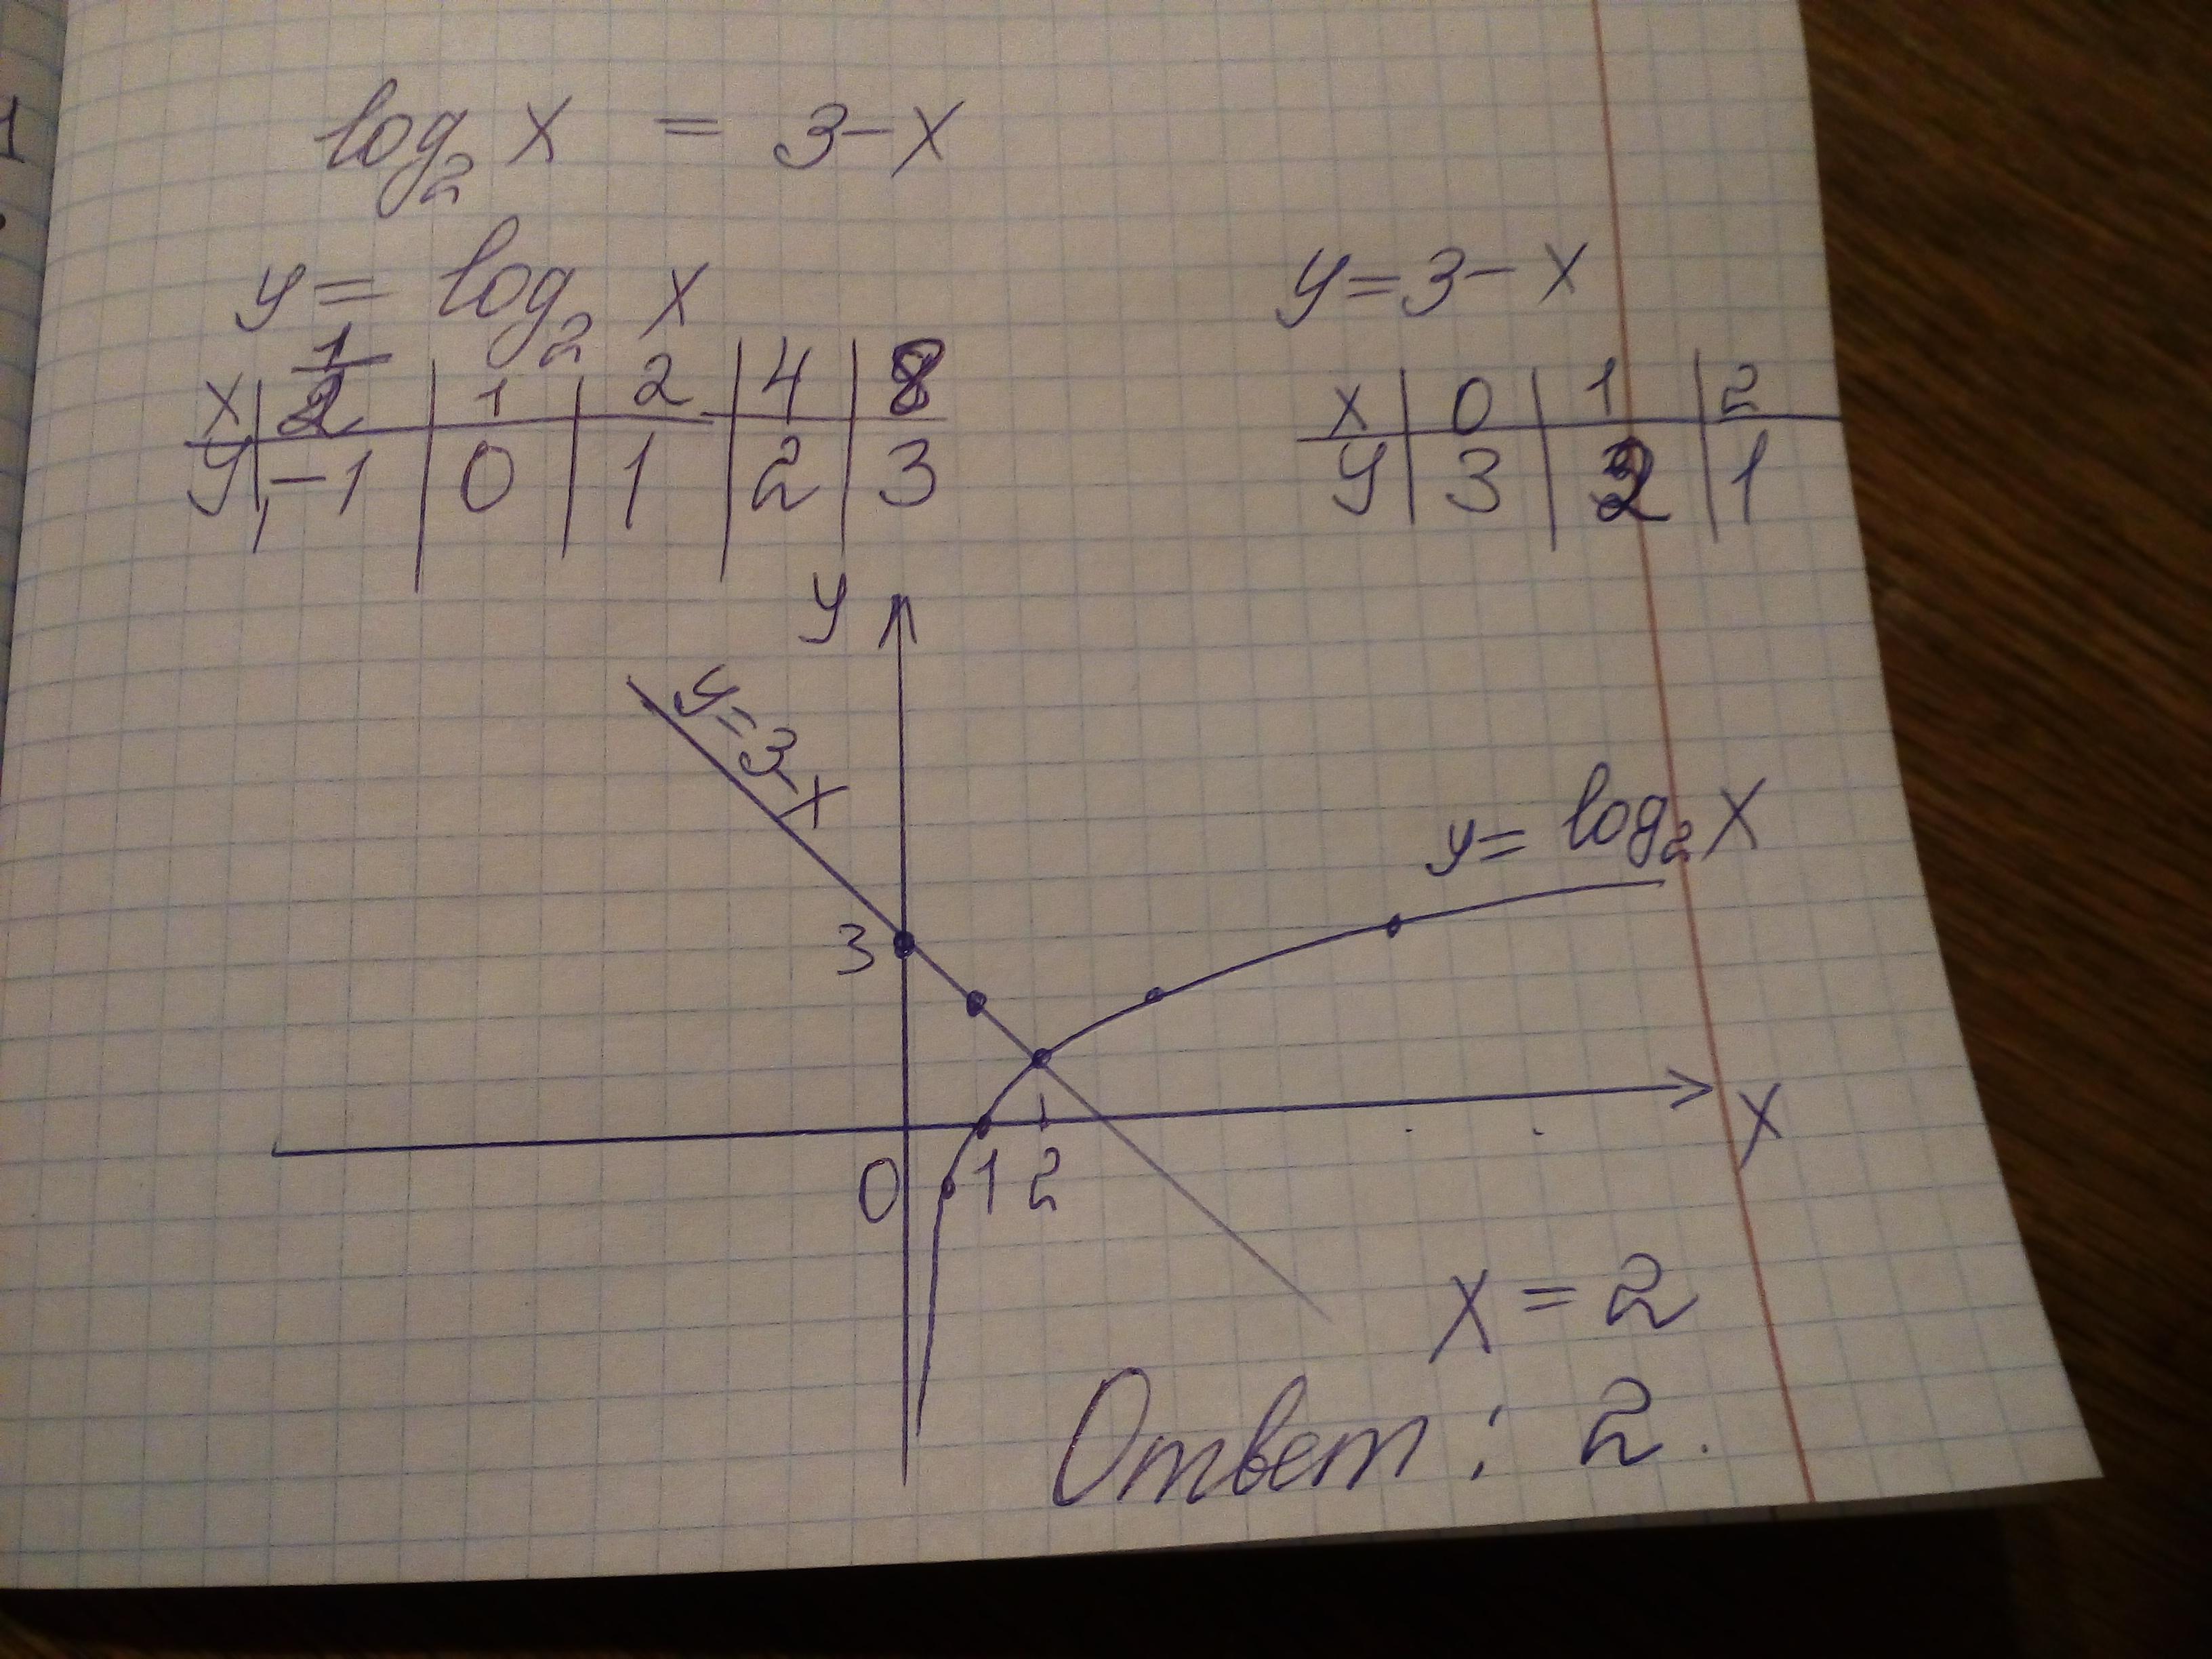 log₂ x = 3-x
y = log₂ x
y=3-x
x | 1/2 | 1 | 2 | 4 | 8
y | -1 | 0 | 1 | 2 | 3
x | 0 | 1 | 2
y | 3 | 2 | 1
y
y=3-x
y= log₂ x
3
x
0 1 2
x = 2
Ответ: 2.